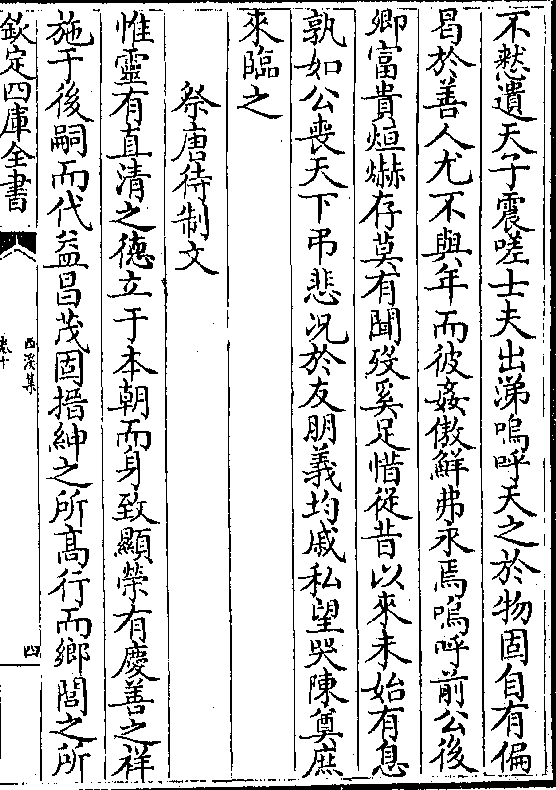 不憗遺天子震嗟士夫出涕嗚呼天之於物固自有偏
曷於善人尤不與年而彼姦傲鮮弗永焉嗚呼前公後
卿富貴烜爀存莫有聞歿奚足惜從昔以來未始有息
孰如公喪天下弔悲況於友朋義均戚私望哭陳奠庶
來臨之
祭唐待制文
惟靈有直清之德立于本朝而身致顯榮有慶善之祥
施于後嗣而代益昌茂固搢紳之所髙行而鄉閭之所
欽定四庫全書
西溪集
卷十
四